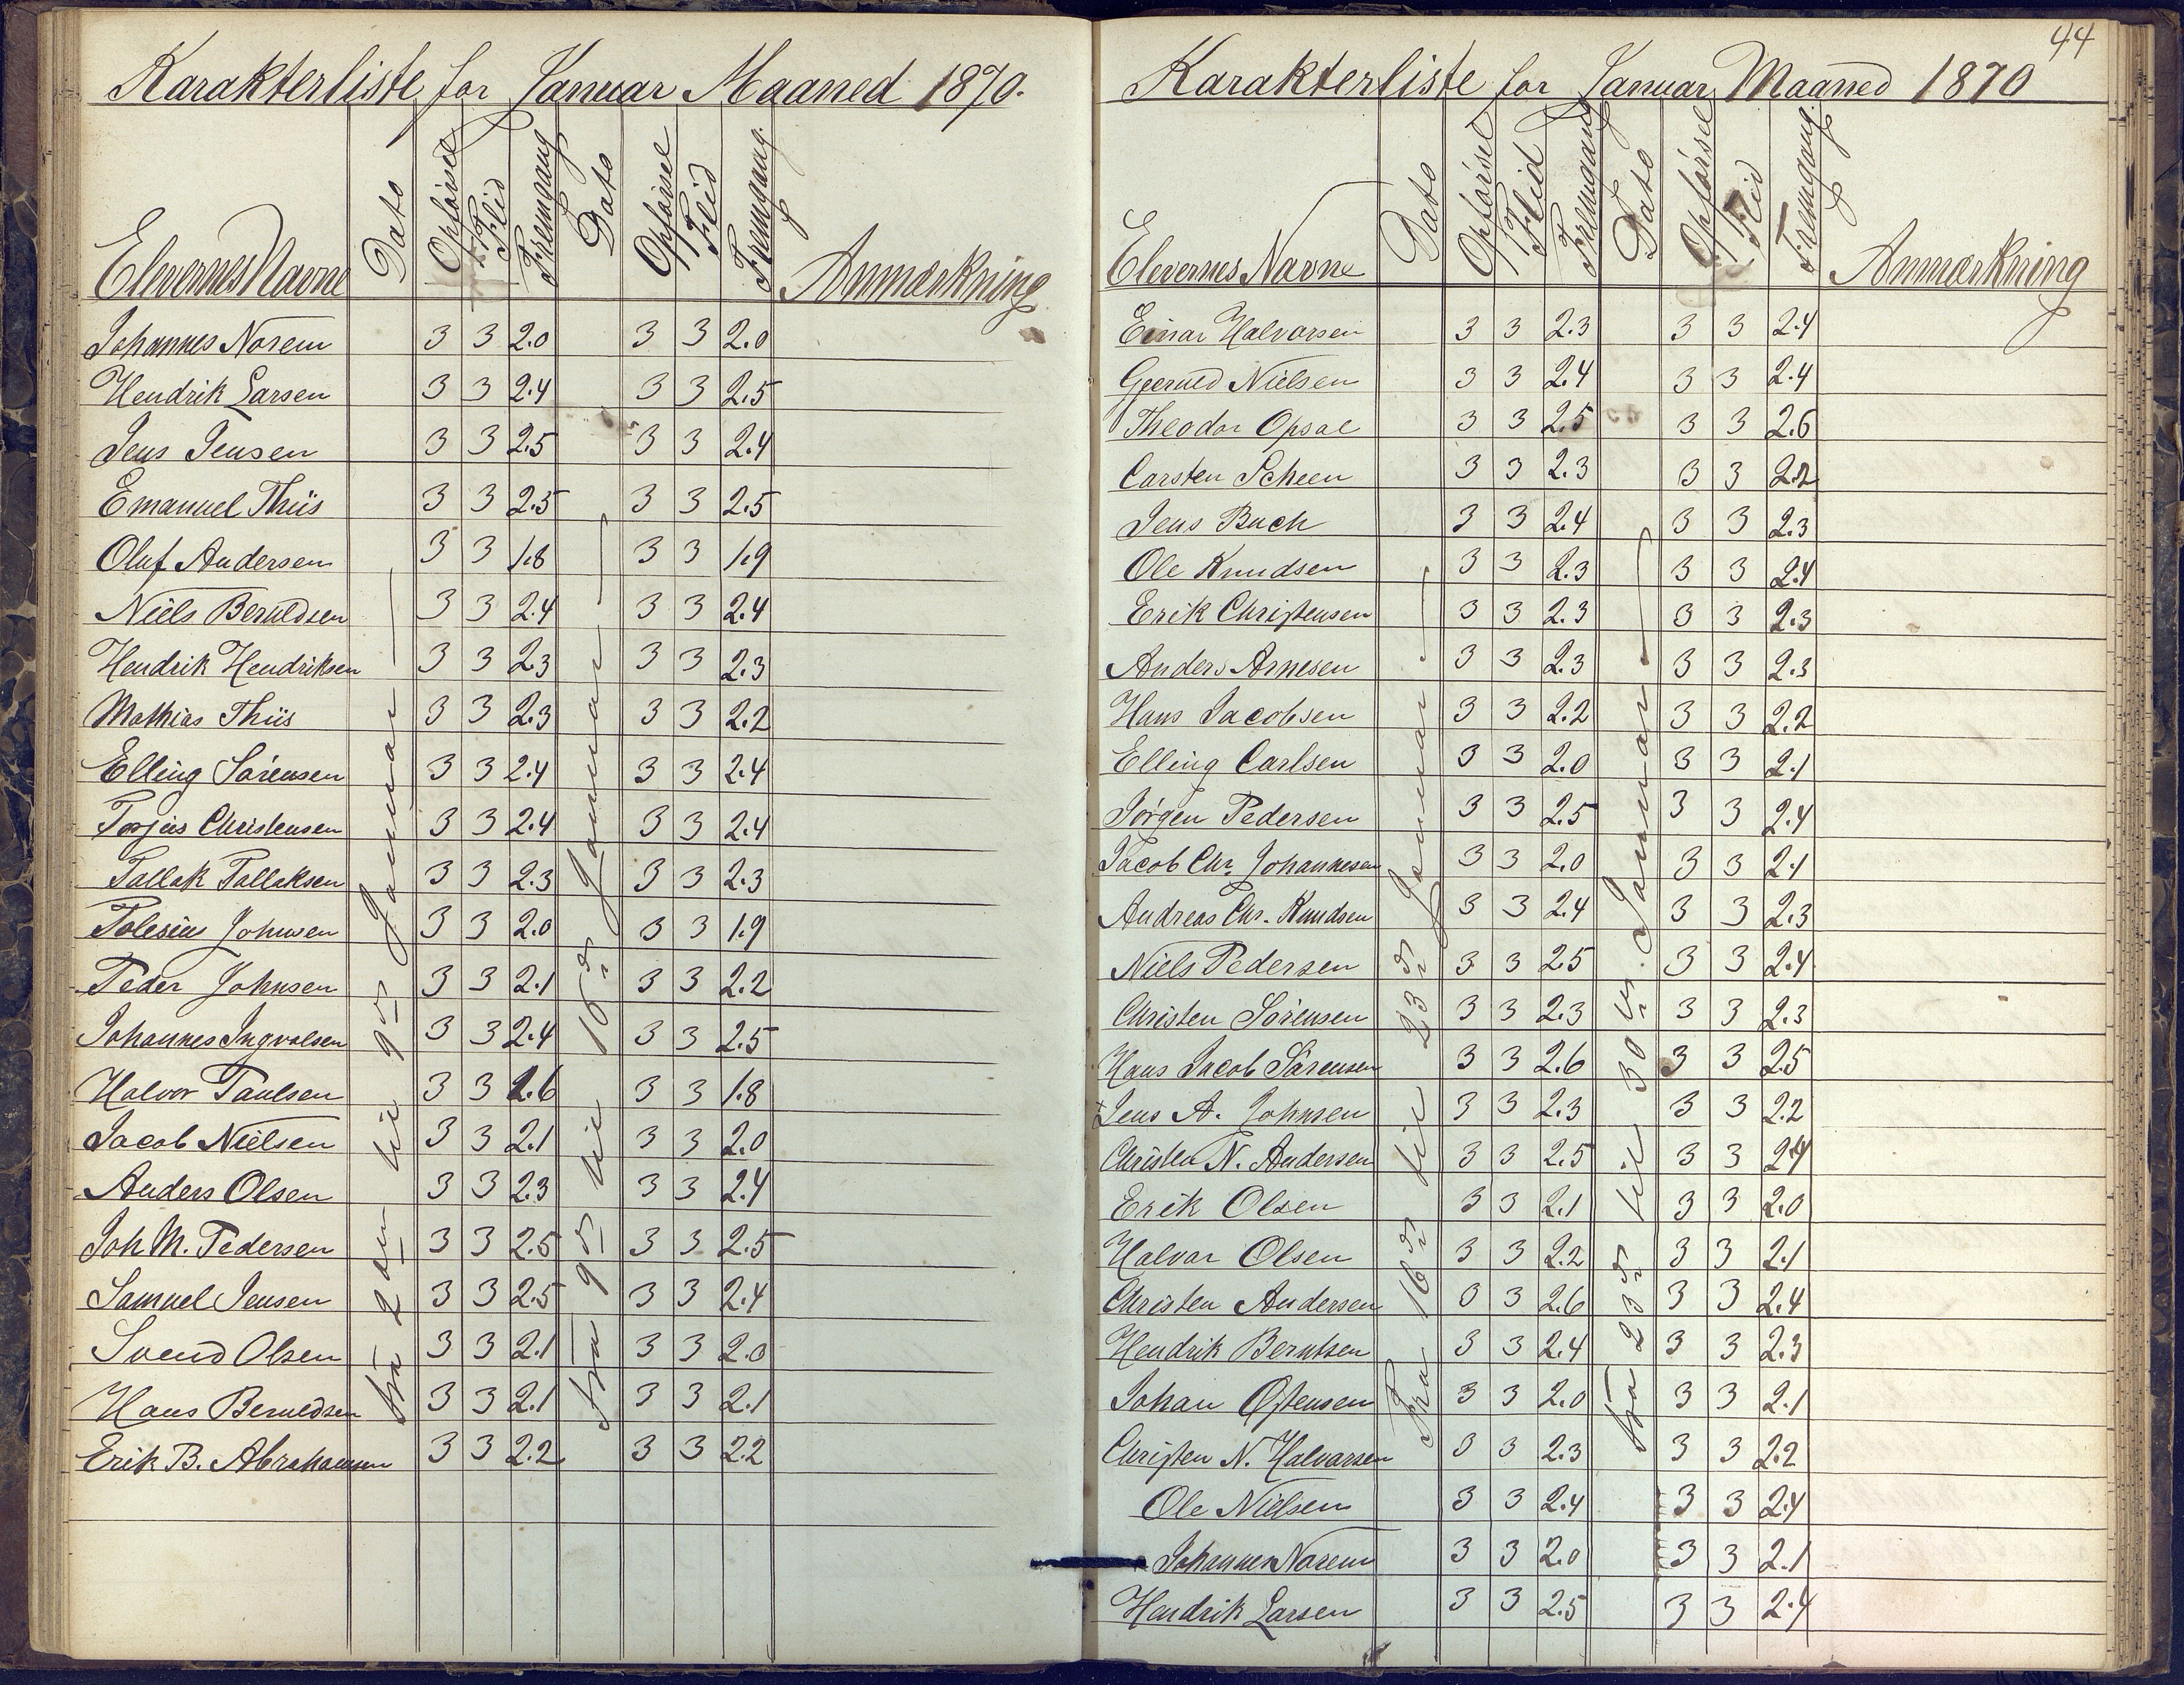 Karakterliste for Januar Maaned 1870.
Elevernes Navne Dato Opførsel Flid Fremgang Dato Opførsel Flid Fremgang. Anmærkning
fra 2den til 9de Januar
fra 9de til 16de Januar
Johannes Norem 3 3 2.0 3 3 2.0
Hendrik Larsen 3 3 2.4 3 3 2.5
Jens Jensen 3 3 2.5 3 3 2.4
Emanuel Thiis 3 3 2.5 3 3 2.5
Oluf Andersen 3 3 1.8 3 3 1.9
Niels Beruldsen 3 3 2.4 3 3 2.4
Hendrik Hendriksen 3 3 2.3 3 3 2.3
Mathias Thiis 3 3 2.3 3 3 2.2
Elling Sørensen 3 3 2.4 3 3 2.4
Torjus Christensen 3 3 2.4 3 3 2.4
Tallak Tallaksen 3 3 2.3 3 3 2.3
Tolesius Johnsen 3 3 2.0 3 3 1.9
Peder Johnsen 3 3 2.1 3 3 2.2
Johannes Ingvalsen 3 3 2.4 3 3 2.5
Halvor Paulsen 3 3 3 3 1.8
Jacob Nielsen 3 3 2.1 3 3 2.0
Anders Olsen 3 3 2.3 3 3 2.4
Joh M. Pedersen 3 3 2.5 3 3 2.5
Samuel Jensen 3 3 2.5 3 3 2.4
Svend Olsen 3 3 2.1 3 3 2.0
Hans Beruldsen 3 3 2.1 3 3 2.1
Erik B. Abrahamsen 3 3 2.2 3 3 2.2
44
Karakterliste for Januar Maaned 1870
Elevernes Navne Dato Opførsel Flid Fremgang Dato Opførsel Flid Fremgang. Anmærkning
Fra 16de til 23de Januar
fra 23de til 30te Januar
Einar Halvorsen 3 3 2.3 3 3 2.4
Gjeruld Nielsen 3 3 2.4 3 3 2.4
Theodor Opsal 3 3 2.5 3 3 2.6
Carsten Scheen 3 3 2.3 3 3 2.2
Jens Buch 3 3 2.4 3 3 2.3
Ole Knudsen 3 3 2.3 3 3 2.4
Erik Christensen 3 3 2.3 3 3 2.3
Anders Arnesen 3 3 2.3 3 3 2.3
Hans Jacobsen 3 3 2.2 3 3 2.2
Elling Carlsen 3 3 2.0 3 3 2.1
Jørgen Pedersen 3 3 2.5 3 3 2.4
Jacob Chr. Johannesen 3 3 2.0 3 3 2.1
Andreas Chr. Knudsen 3 3 2.4 3 3 2.3
Niels Pedersen 3 3 2.5 3 3 2.4
Christen Sørensen 3 3 2.3 3 3 2.3
Hans Jacob Sørensen 3 3 2.6 3 3 2.5
Jens A. Johnsen 3 3 2.3 3 3 2.2
Christen N. Andersen 3 3 2.5 3 3 2.4
Erik Olsen 3 3 2.1 3 3 2.0
Halvor Olsen 3 3 2.2 3 3 2.1
Christen Andersen 3 3 2.6 3 3 2.4
Hendrik Berntsen 3 3 2.4 3 3 2.3
Johan Østensen 3 3 2.0 3 3 2.1
Christen N. Halvorsen 3 3 2.3 3 3 2.2
Ole Nielsen 3 3 2.4 3 3 2.4
Johannes Norem 3 3 2.0 3 3 2.1
Hendrik Larsen 3 3 2.5 3 3 2.4